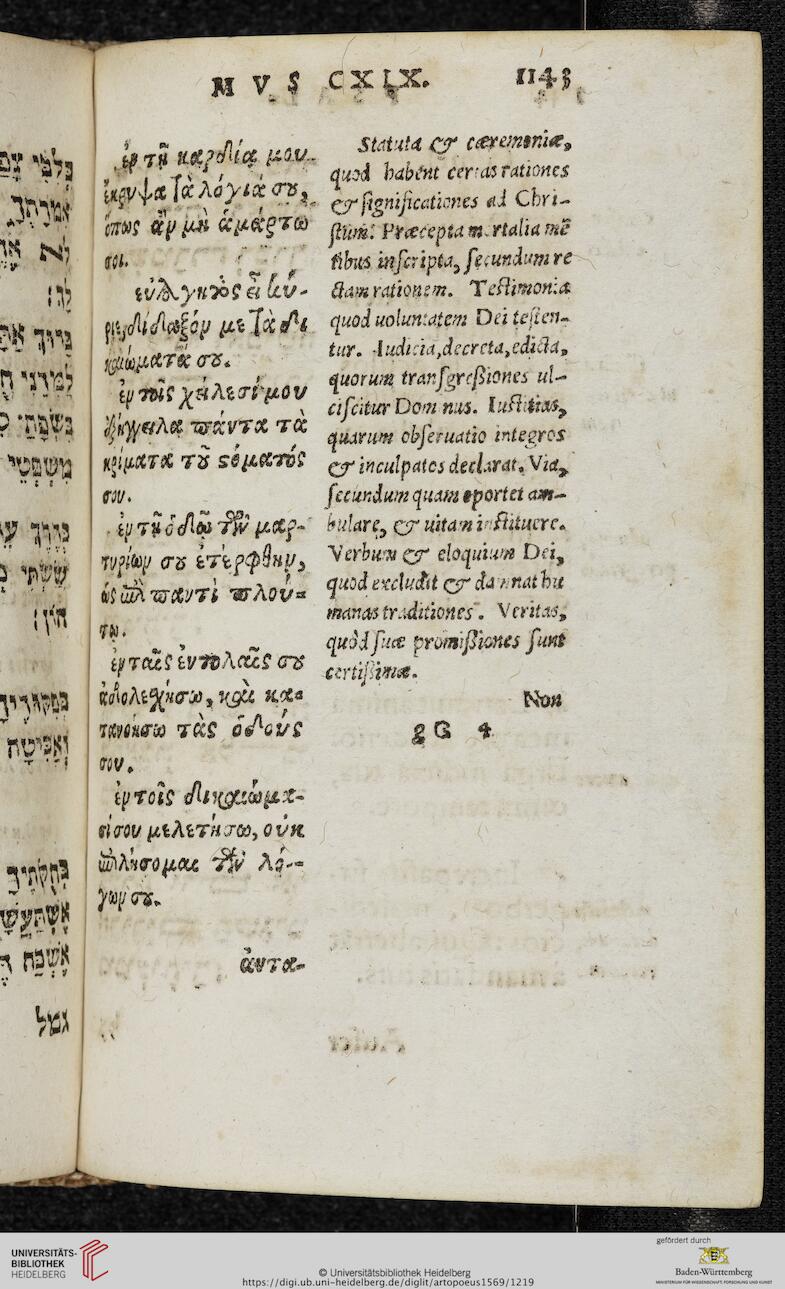 MVS CXIX. 1143
ἐν τῇ καρδίᾳ μου
ἔκρυψα τὰ λόγιά σȣ,
ὅπως ἂν μὴ ἁμάρτω
σοι.
εὐλογητὸς εἶ κύ-
ριε, δίδαξόν με τὰ δι
καιώματά σȣ.
ἐν τοῖς χείλεσί μου
ἐξήγγειλα πάντα τὰ
κρίματα τȣ͂ στόματός
σου.
ἐν τῇ ὁδῷ τῶν μαρ-
τυρίων σȣ ἐτέρφθην,
ὡς ἐπὶ παντὶ πλού-
τῳ.
ἐν ταῖς ἐντολαῖς σȣ
ἀδολεσχήσω, καὶ κα-
τανοήσω τὰς ὁδούς
σου.
ἐν τοῖς δικαιώμα-
σί σου μελετήσω, οὐκ
ἐπιλήσομαι τῶν λό-
γων σȣ.
ἀντα-
Statuta & cæremoniæ,
quod habent certas rationes
& significationes ad Chri-
stum. Præcepta mortalia mẽ
tibus inscripta, secundum re
ctam rationem. Testimonia
quod uoluntatem Dei testen-
tur. Iudicia, decreta, edicta,
quorum transgreßiones ul-
ciscitur Dominus. Iustitias,
quarum obseruatio integros
& inculpatos declarat. Via,
secundum quam oportet am-
bulare, & uitam instituere.
Verbum & eloquium Dei,
quod excludit & damnat hu
manas traditiones. Veritas,
quòd suæ promißiones sunt
certißimæ.
Non
gG 4
בְּלִבִּי
אִמְרָתֶךָ
לֹא
לָךְ׃
בָּרוּךְ
לַמְּדֵנִי
בִּשְׂפָתַי
מִשְׁפְּטֵי
בְּדֶרֶךְ
שַׂשְׂתִּי
הוֹן׃
בְּפִקּוּדֶיךָ
וְאַבִּיטָה
בְּחֻקֹּתֶיךָ
אֶשְׁתַּעֲשָׁ
אֶשְׁכַּח
גמל
UNIVERSITÄTS-
BIBLIOTHEK
HEIDELBERG
© Universitätsbibliothek Heidelberg
https://digi.ub.uni-heidelberg.de/diglit/artopoeus1569/1219
gefördert durch
Baden-Württemberg
MINISTERIUM FÜR WISSENSCHAFT, FORSCHUNG UND KUNST